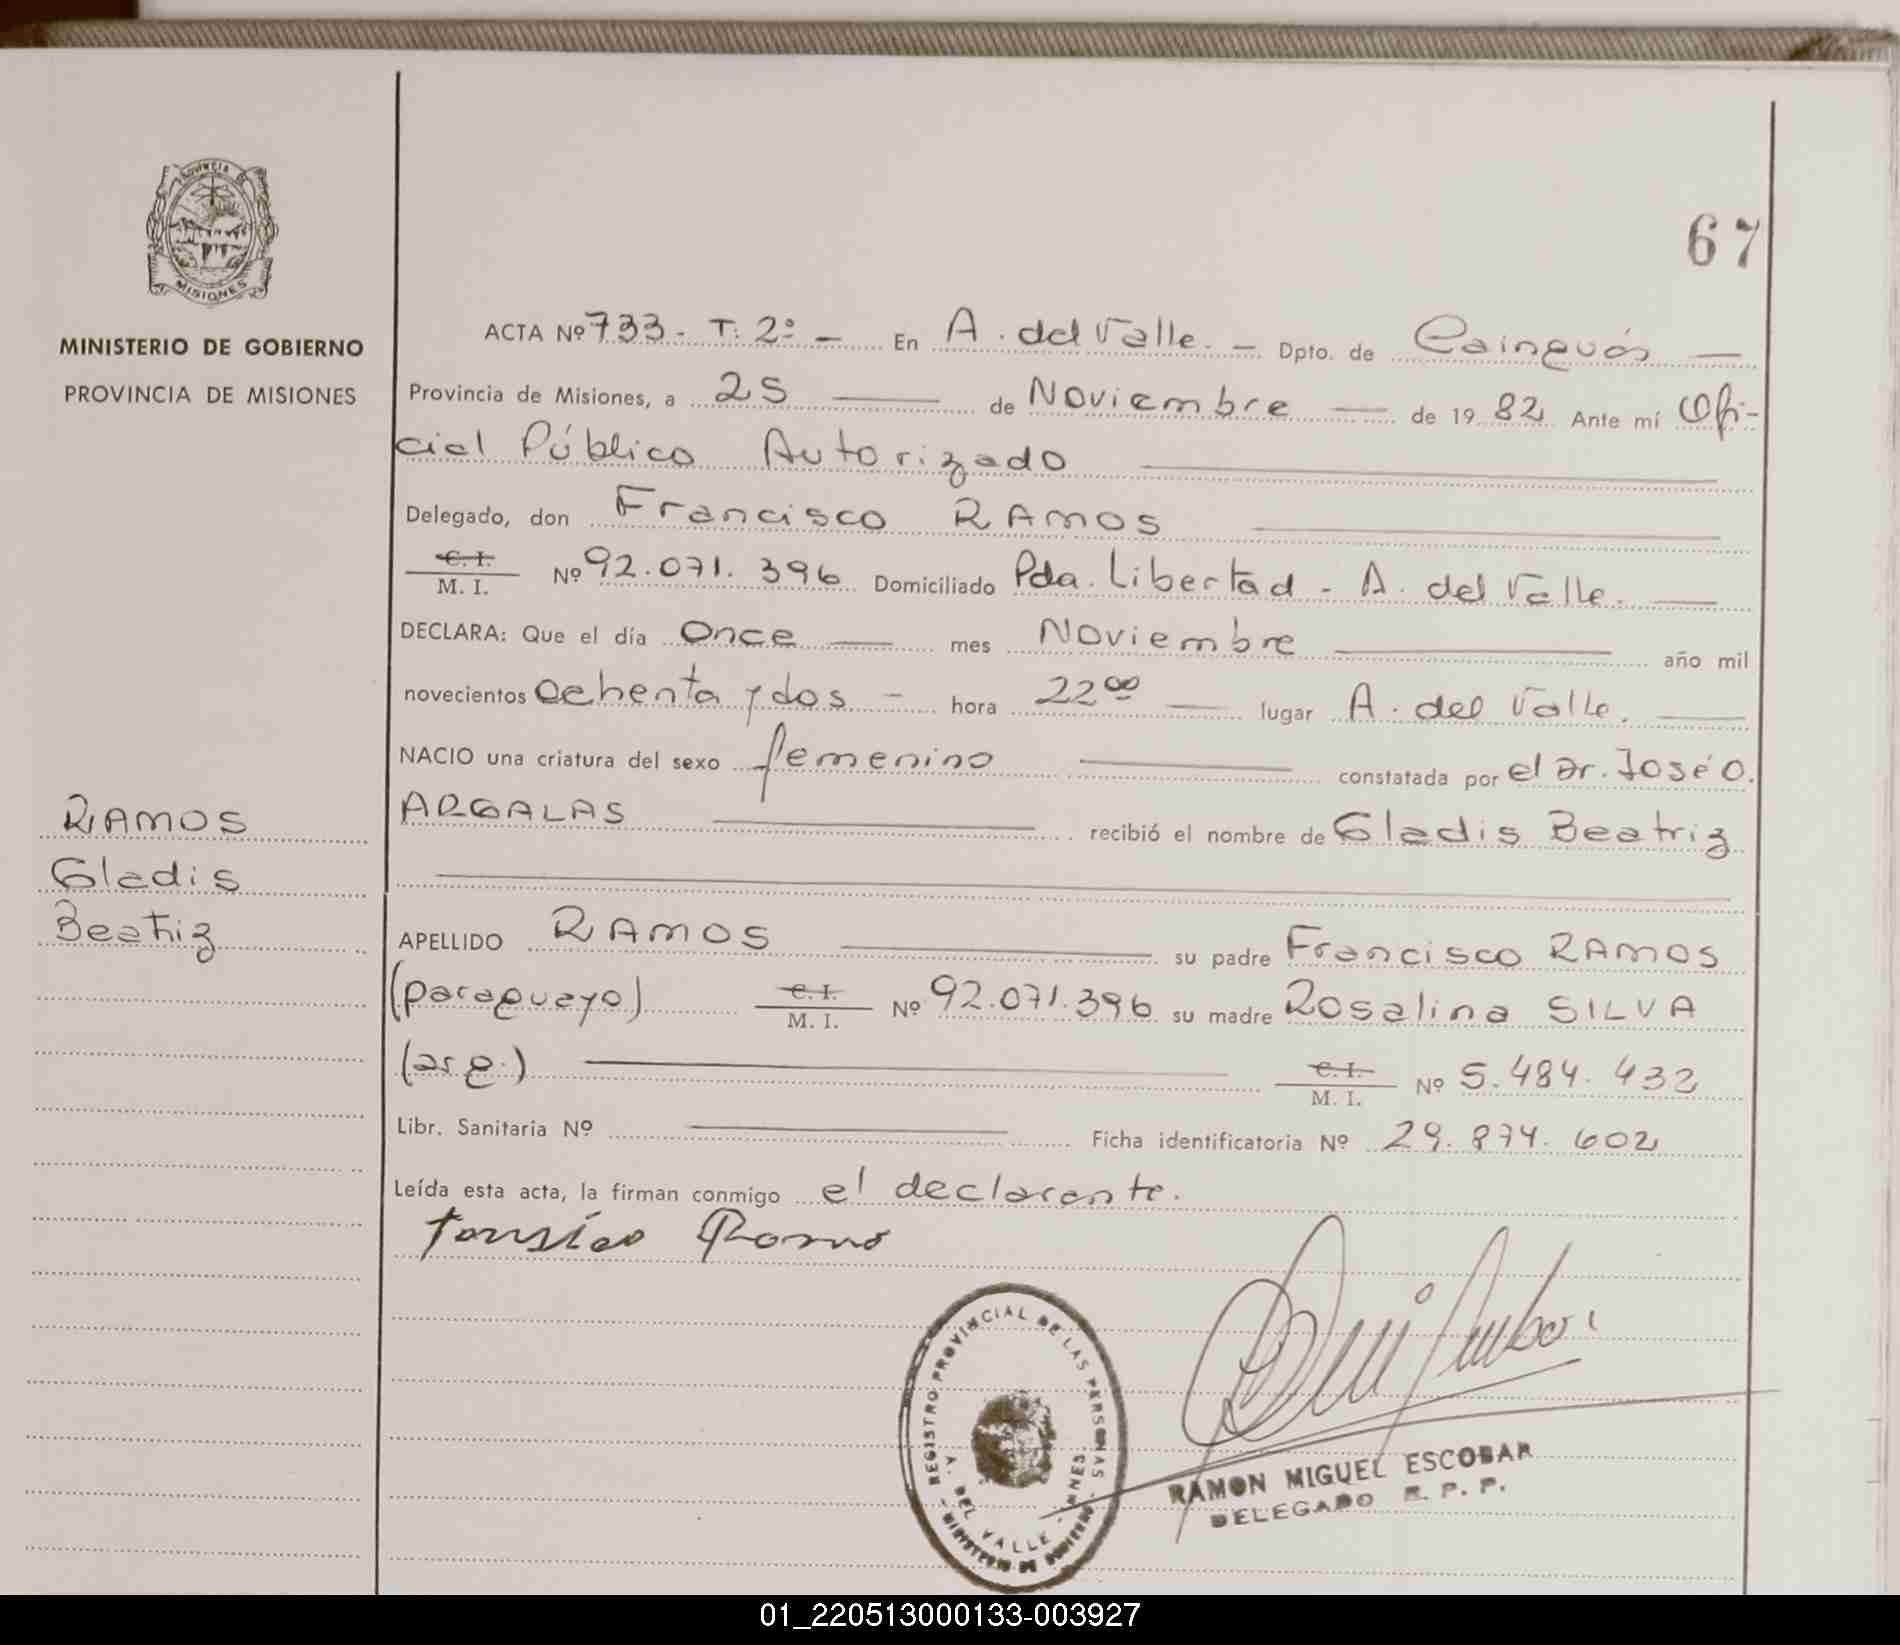 PROVINCIA
MISIONES
MINISTERIO DE GOBIERNO
PROVINCIA DE MISIONES
67
ACTA Nº 733 - T: 2º - En A. del Valle. - Dpto. de Cainguás
Provincia de Misiones, a 25 de Noviembre de 19 82 Ante mí Ofi-
cial Público Autorizado
Delegado, don Francisco RAMOS
C. I.
M. I. Nº 92.071.396 Domiciliado Pda. Libertad - A. del Valle.
DECLARA: Que el día Once mes Noviembre año mil
novecientos ochenta y dos - hora 22⁰⁰ lugar A. del Valle.
NACIO una criatura del sexo femenino constatada por el Dr. José O.
ARGALAS recibió el nombre de Gladis Beatriz
RAMOS
Gladis
Beatriz
APELLIDO RAMOS su padre Francisco RAMOS
(paraguayo) C. I.
M. I. Nº 92.071.396 su madre Rosalina SILVA
(arg.) C. I.
M. I. Nº 5.484.432
Libr. Sanitaria Nº Ficha identificatoria Nº 29.874.602
Leída esta acta, la firman conmigo el declarante.
REGISTRO PROVINCIAL DE LAS PERSONAS
A. DEL VALLE - MNES
MINISTERIO DE GOBIERNO
RAMON MIGUEL ESCOBAR
DELEGADO R. P. P.
01_220513000133-003927